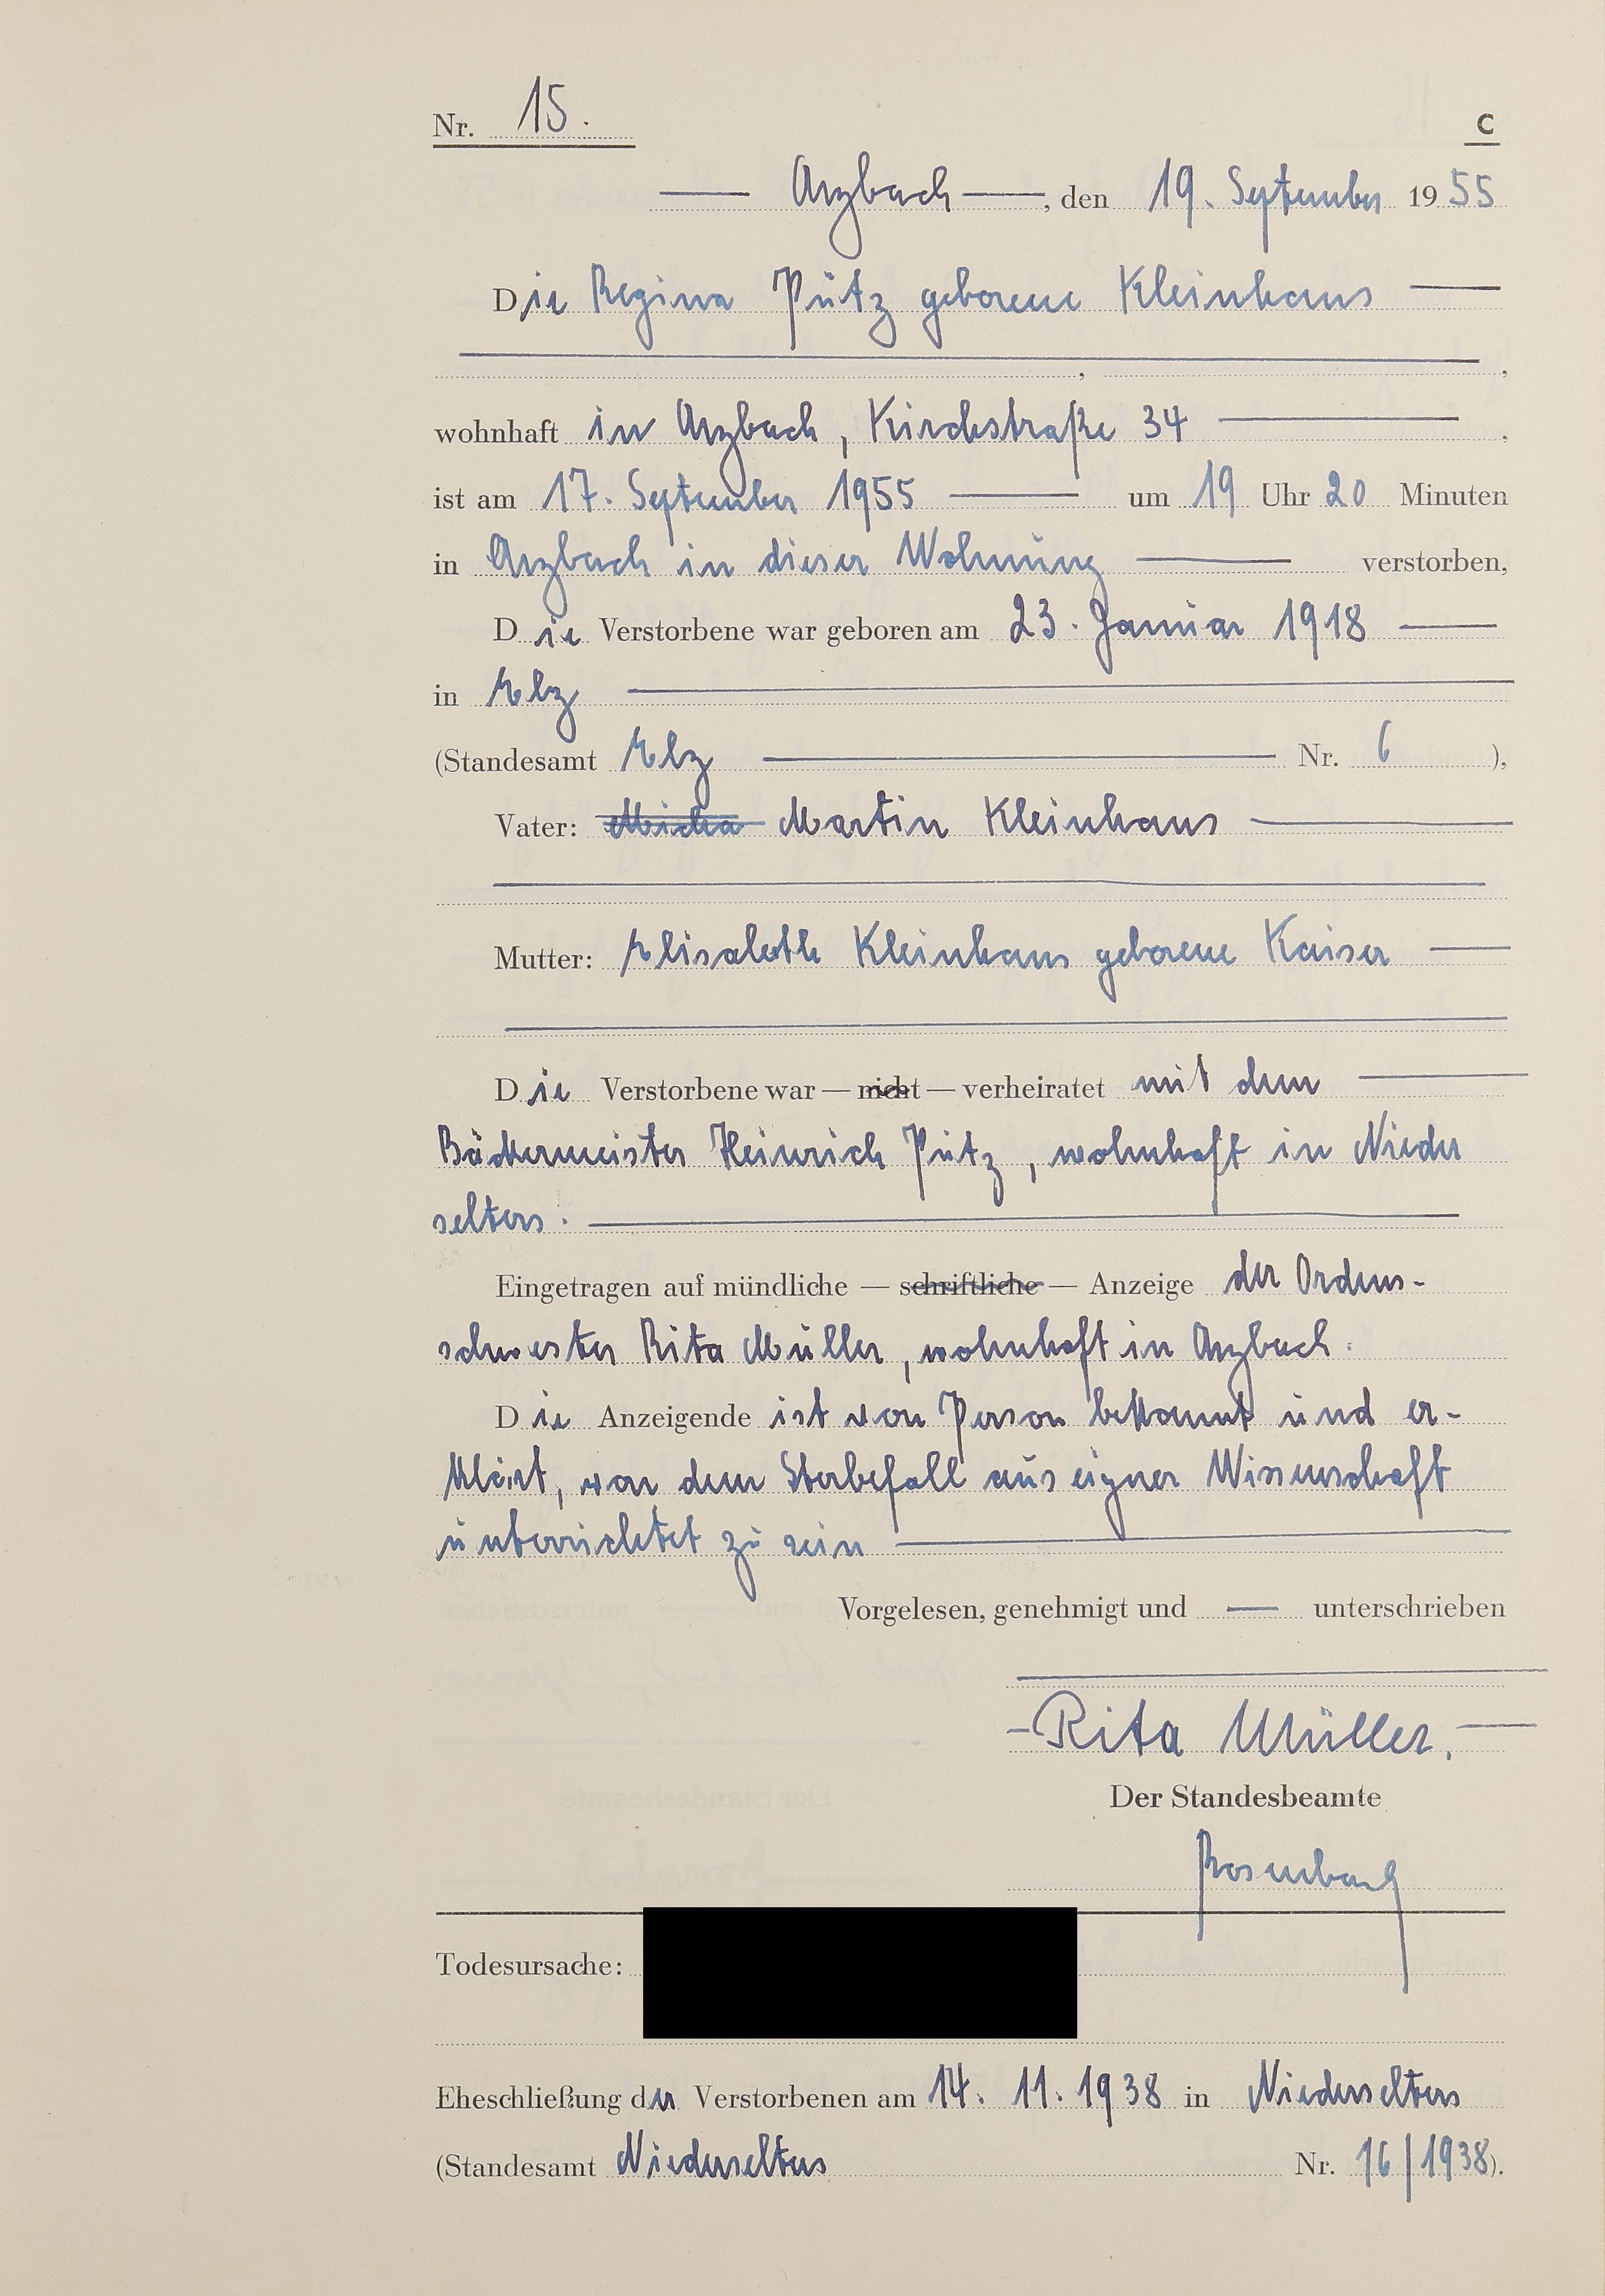 Nr. 15. C
— Arzbach —, den 19. September 1955
Die Regina Pütz geborene Kleinhaus —
, ,
wohnhaft in Arzbach, Kirchstraße 34 — ,
ist am 17. September 1955 — um 19 Uhr 20 Minuten
in Arzbach in dieser Wohnung — verstorben,
Die Verstorbene war geboren am 23. Januar 1918 —
in Elz —
(Standesamt Elz — Nr. 6 ),
Vater: Micha Martin Kleinhaus —
Mutter: Elisabeth Kleinhaus geborene Kaiser —
Die Verstorbene war — nicht — verheiratet mit dem —
Bäckermeister Heinrich Pütz, wohnhaft in Nieder
selters. —
Eingetragen auf mündliche — schriftliche — Anzeige der Ordens-
schwester Rita Müller, wohnhaft in Arzbach.
Die Anzeigende ist von Person bekannt und er-
klärt, von dem Sterbefall aus eigner Wissenschaft
unterrichtet zu sein —
Vorgelesen, genehmigt und — unterschrieben
— Rita Müller. —
Der Standesbeamte
Rosenbach
Todesursache:
Eheschließung der Verstorbenen am 14. 11. 1938 in Niederselters
(Standesamt Niederselters Nr. 16/1938).